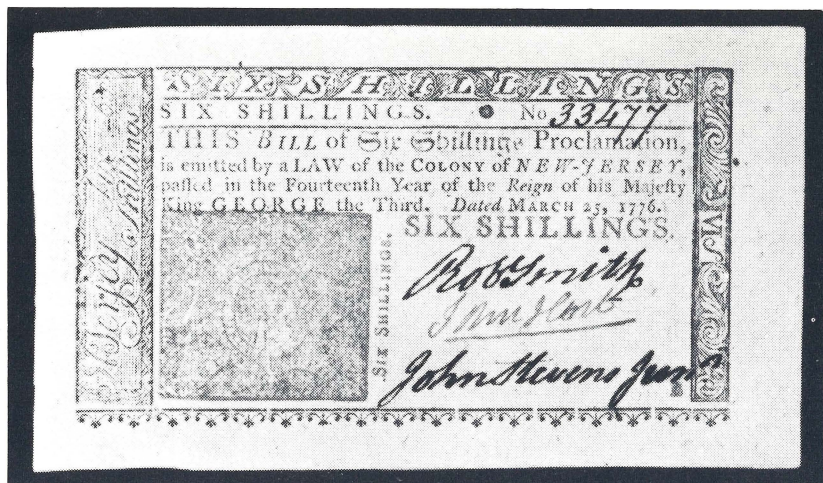 SIX SHILLINGS
SIX SHILLINGS. No 33477
THIS BILL of Six Shillings Proclamation,
is emitted by a LAW of the COLONY of NEW-JERSEY,
paſſed in the Fourteenth Year of the Reign of his Majeſty
King GEORGE the Third. Dated MARCH 25, 1776.
SIX SHILLINGS.
SIX SHILLINGS.
Robt Smith
John Stevens Junr
Jerſey
Shillings
SIX S